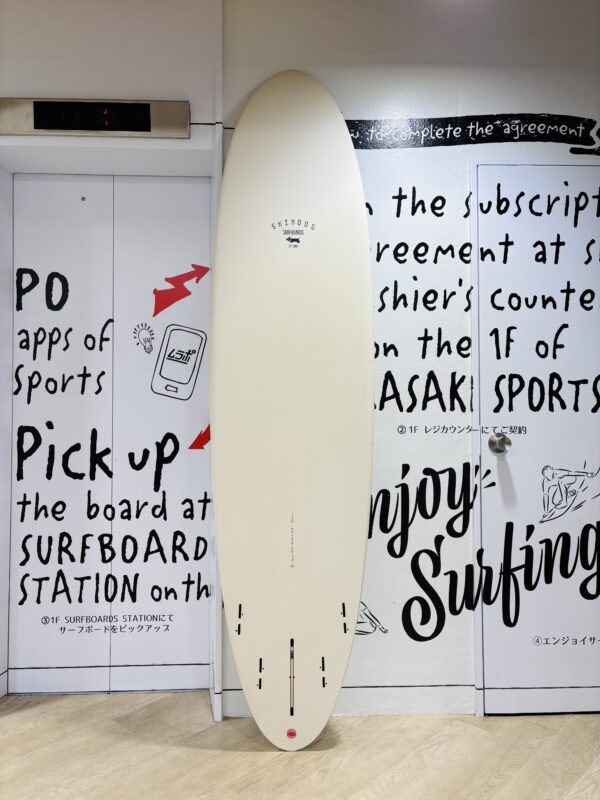 PO
apps of
Sports
ムラポ
Pick up
the board at
SURFBOARD
STATION on th
③1F SURFBOARDS STATIONにて
サーフボードをピックアップ
SKINDOG
SURFBOARDS
to complete the agreement
the subscript
reement at s
shier's counte
on the 1F of
ASAKI SPORTS
②1F レジカウンターにてご契約
njoy
Surfing
④エンジョイサー